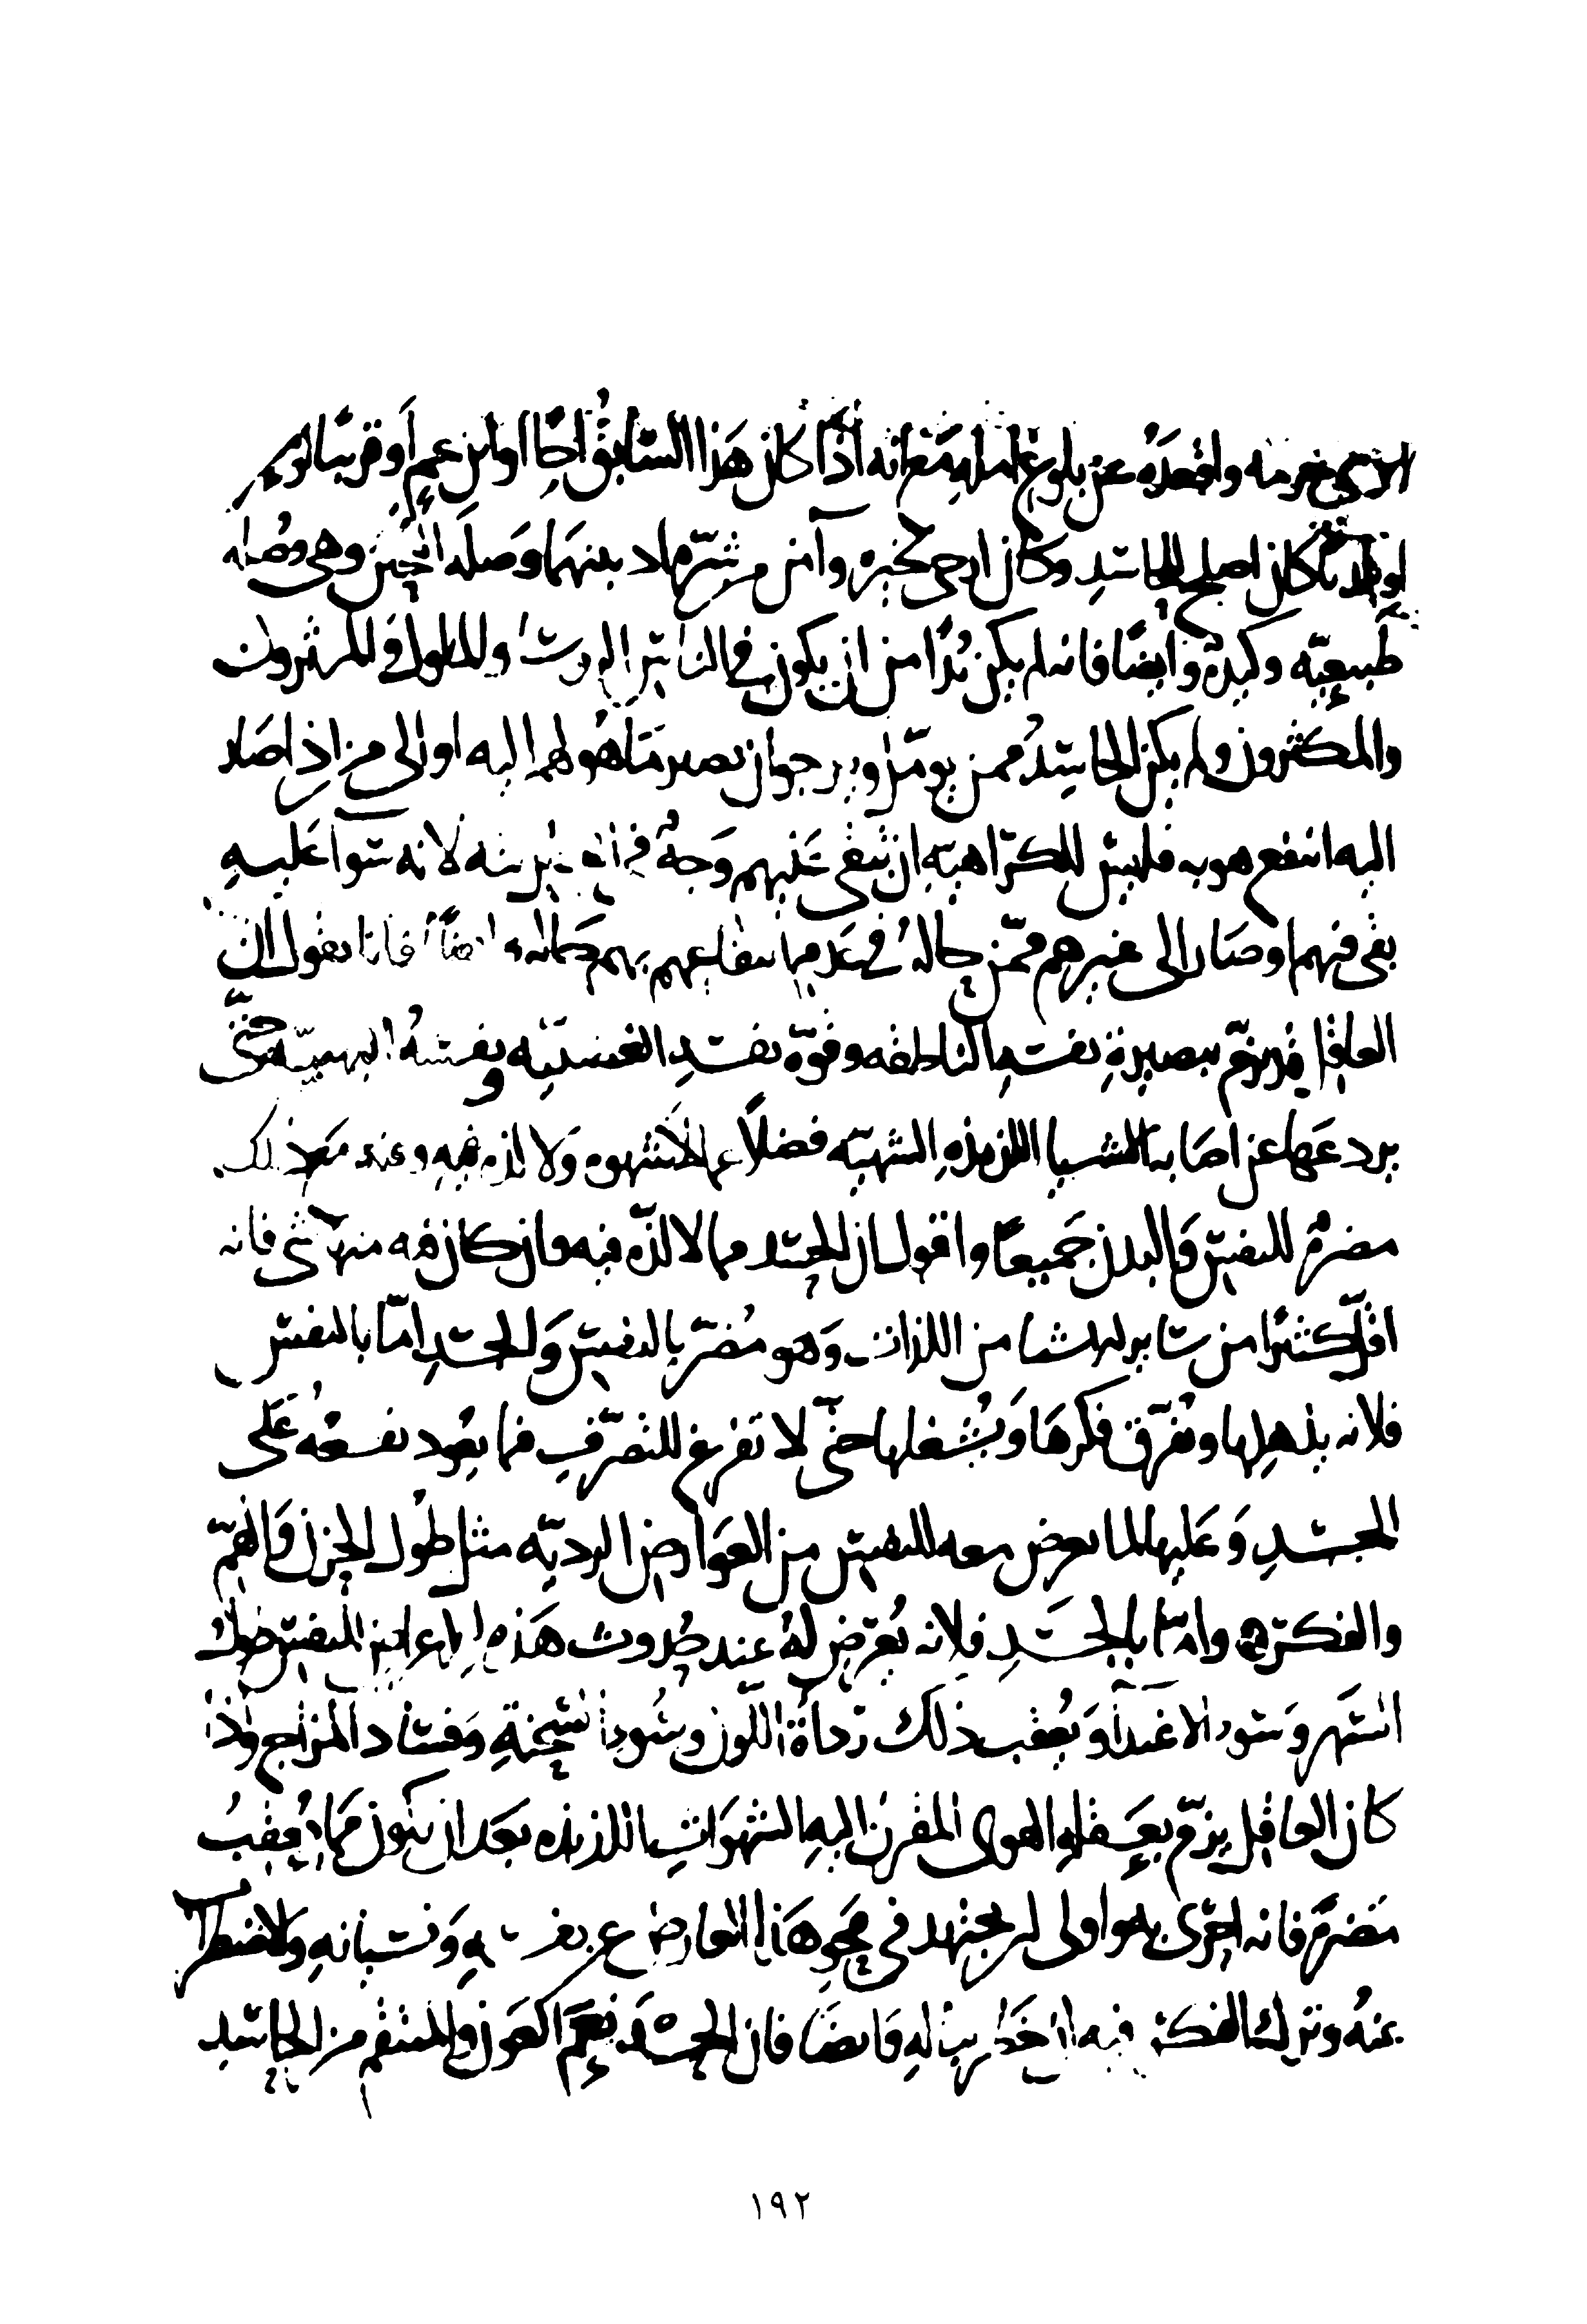 الذي حرمه واقعده عن بلوغ امله مع انه اذا كان هذا السابق اخا او ابن عم او قريبا او
بلديا كان اصلح للحاسد وكان ارجى لخيره وآمن من شره اذ بينهما وصلة التجنس وهي وصله
طبيعيّه وكيدة وايضا فانه لم يكن بُدّا من ان يكون في الناس الرؤساء والملوك والمثرون
والمكثرون ولم يكن الحاسد ممن يؤمّل ويرجوا ان يصير ما هو لهم اليه او الى من اذا صار
اليه انتفع هو به فليس للكراهيّه ان تبقى عليهم وجه لانه سوآ عليه
بقى فيهم او صار الى غيرهم ممّن حاله في عدم انتفاعه بهم ايضا فانا نقول ان
العاقل قد يزمّ ببصيرة نفسه الناطقه وقوّه نفسه الغضبيّه نفسهُ البهيميّه حتّى
يردعها عن اصابة الاشيا اللذيذه الشهيّه فضلا عما لا شهوه ولا لذه فيه وفيه مع ذلك
مضرة للنفس والبدن جميعا واقول ان الحسد مما لا لذّه فيه وان كان فيه منها شي فانه
اقلّ كثيرا من ساير الاشيا من اللذات وهو مُضرّ بالنفس والجسد امّا بالنفس
فلانه يذهلها ويُفرّق فكرها ويُشغلها حتّى لا تفرغ للتصرّف فيما يعود نفعهُ على
الجسد وعليها لما يعرض معه للنفس من العوارض الرديّه مثل طُول الحزن والهمّ
والفكره وامّا بالجسد فلانه يُعرض له عند حُدوث هذه الاعراض للنفس طول
السهر وسو الاغتدآ ويُعقب ذلك رداءة اللّون وسُو السحنة وفساد المزاج واذا
كان العاقل يزمّ بعقله الهوى المقرن اليه الشهوات اللذيذه بعد ان يكون مما يُعقبُ
مضرة فانه احرى به واولى ان يجتهد في محو هذا العارض عن نفسه ونسيانه والاضطراب
عنهُ وترك الفكر فيه اذا خطر بباله وايضا فان الحسد نعم العون والمنتقم من الحاسد
١٩٢